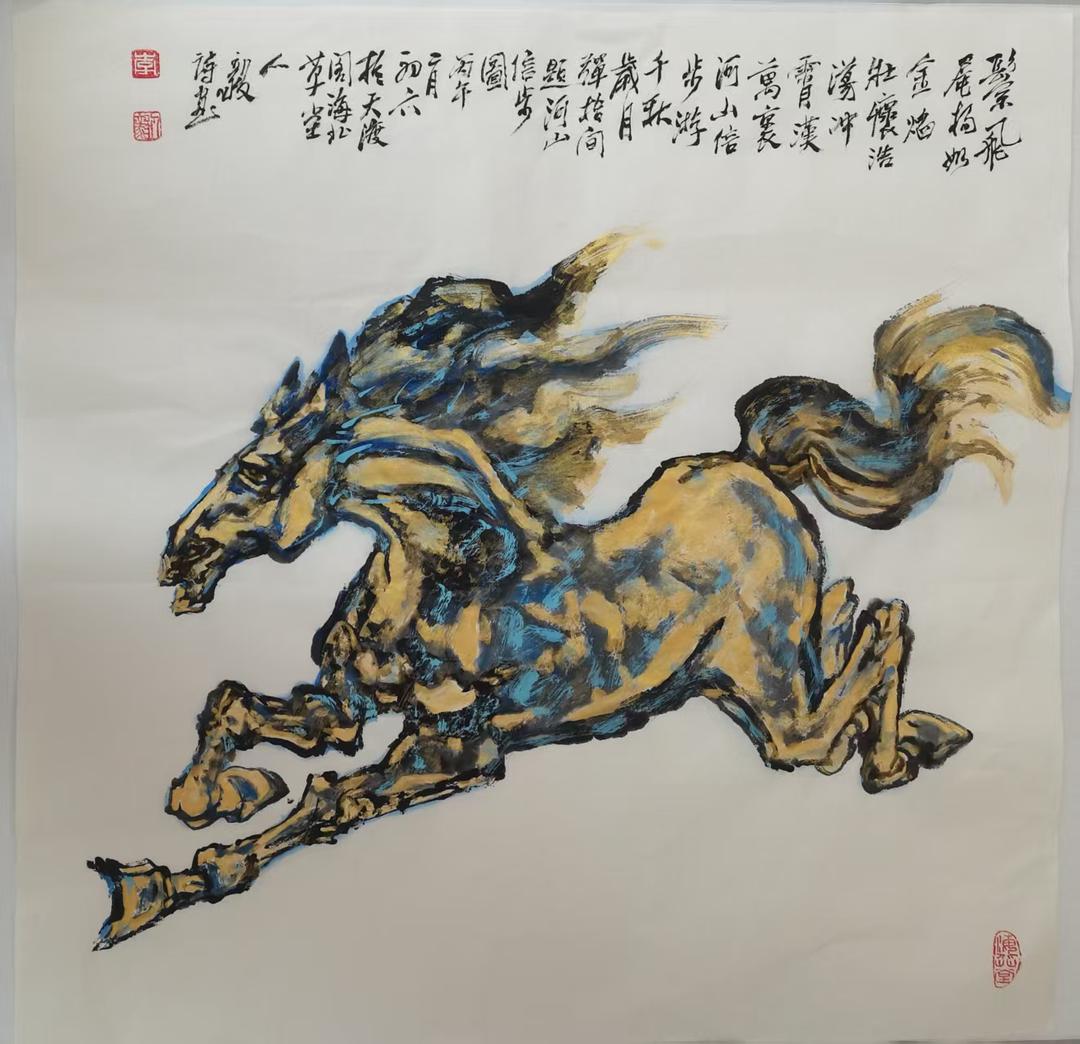 鬃飛
尾揚如
金焰
壯懷浩
蕩冲
霄漢
萬裏
河山信
步游
千秋
歲月
彈指間
題河山
信步
圖
丙午
二月
初六
於天渡
閣海北
草堂
人
毅
詩畫
李